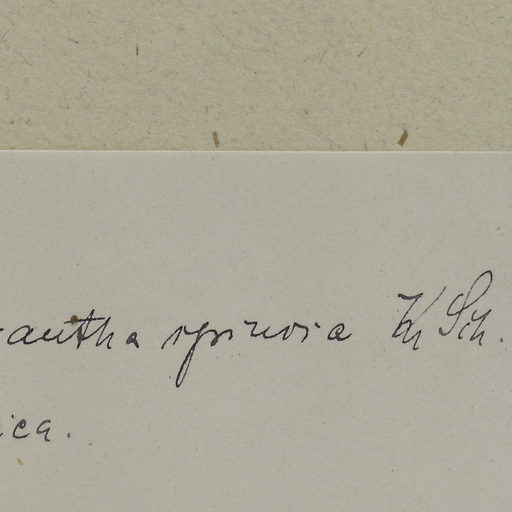 antha spinosa K Sch.
ica.